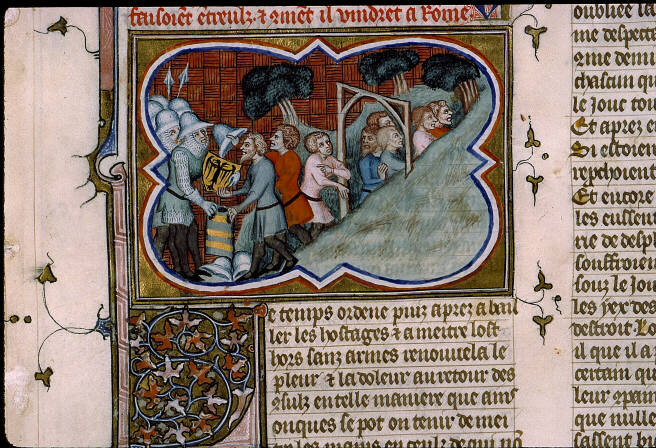 faisoiēt ētreulz ⁊ ꝯmēt il vindret a Rome
e temps ordene puis aprez a bail
ler les hostages ⁊ a mettre lost
hors sanz armes renouuela le
pleur ⁊ la doleur au retour des
ꝯsulz en telle maniere que
onques se pot on tenir de met
oubliee la
me despecte
chascun qu
le Jouc tou
Et aprez e
Si estoien
repchoient
Et encore
les eussent
rie de despl
souffroien
souz le Jou
les yex des
destroit Lo
il que il a
certain qu
leur ꝯpain
que nulle